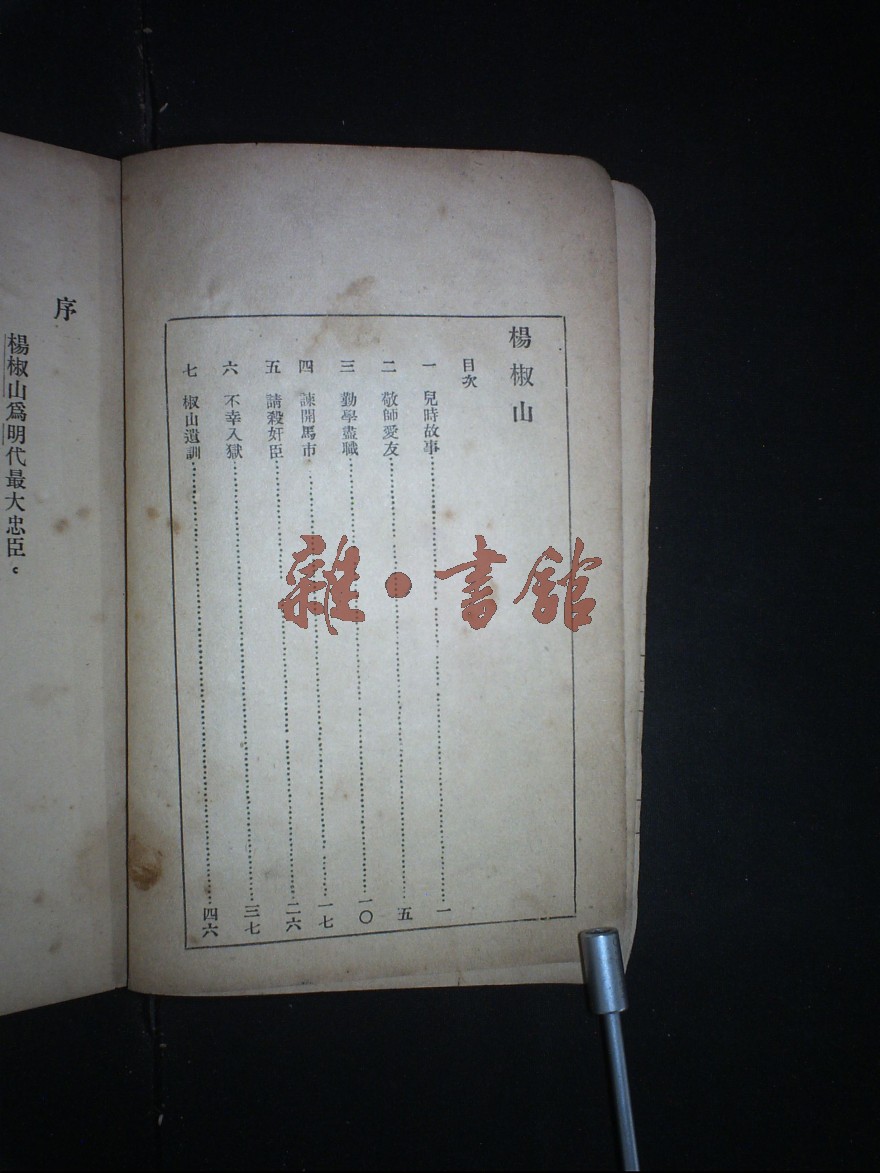 楊椒山
目次
一 兒時故事……一
二 敬師愛友……五
三 勤學盡職……一〇
四 諫開馬市……一七
五 請殺奸臣……二六
六 不幸入獄……三七
七 椒山遺訓……四六
序
楊椒山爲明代最大忠臣。
雜·書館